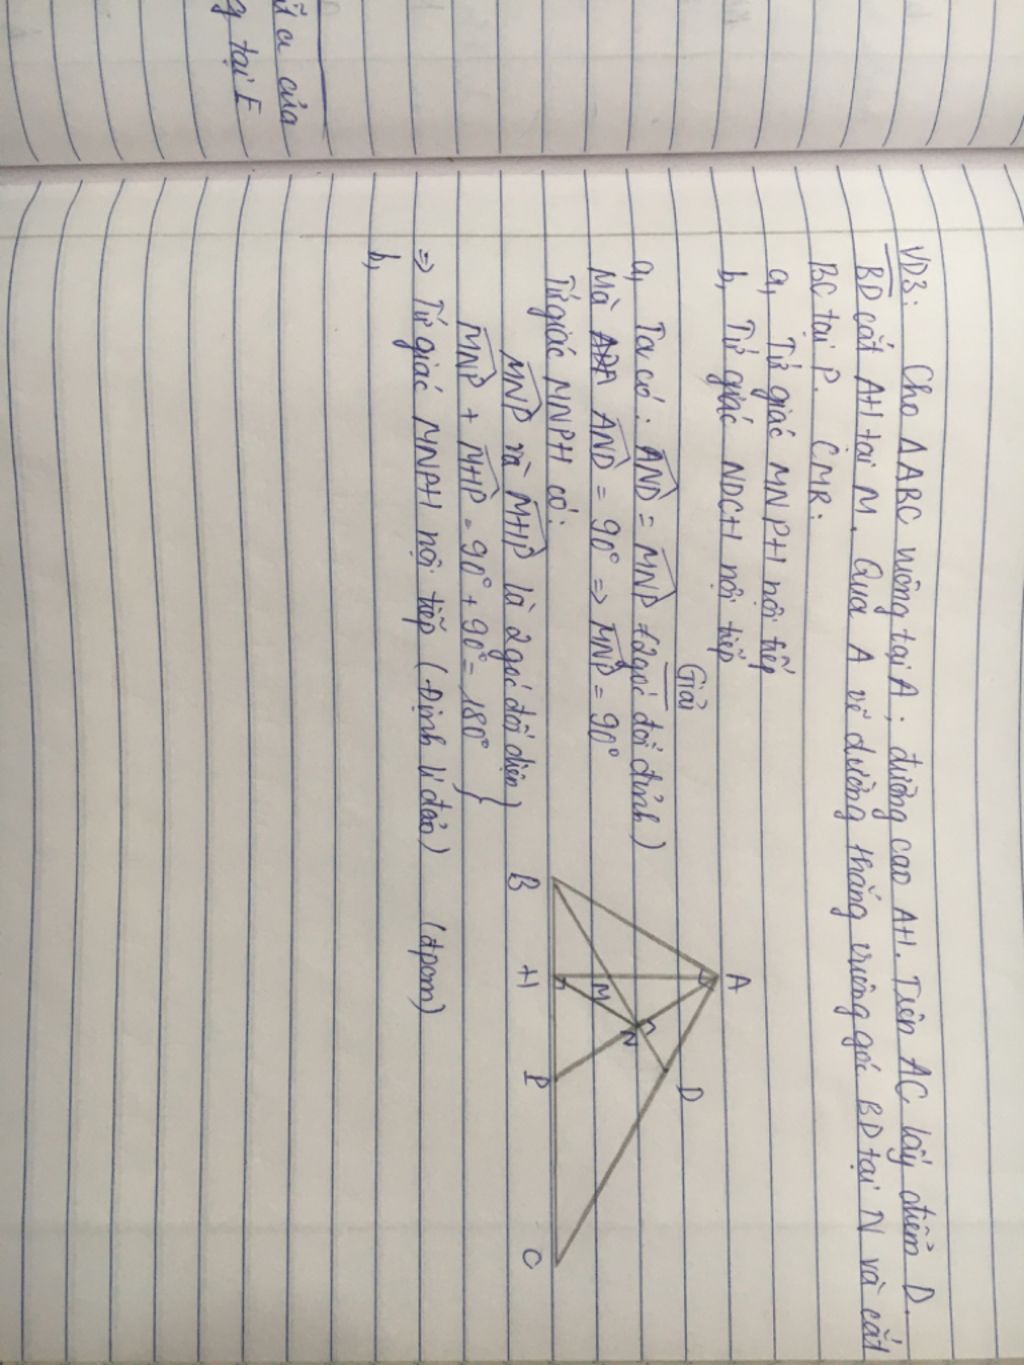 ữa của
g tại E
VD3: Cho ΔABC vuông tại A; đường cao AH. Trên AC lấy điểm D.
BD cắt AH tại M. Qua A vẽ đường thẳng vuông góc BD tại N và cắt
BC tại P. CMR:
a, Tứ giác MNPH nội tiếp
b, Tứ giác NDCH nội tiếp
Giải
a, Ta có: AND = MNP (2 góc đối đỉnh)
Mà AND = 90° => MNP = 90°
Tứ giác MNPH có:
MNP và MHP là 2 góc đối diện
MNP + MHP = 90° + 90° = 180° }
=> Tứ giác MNPH nội tiếp (Định lí đảo) (đpcm)
b,
A
D
N
M
B
H
P
C